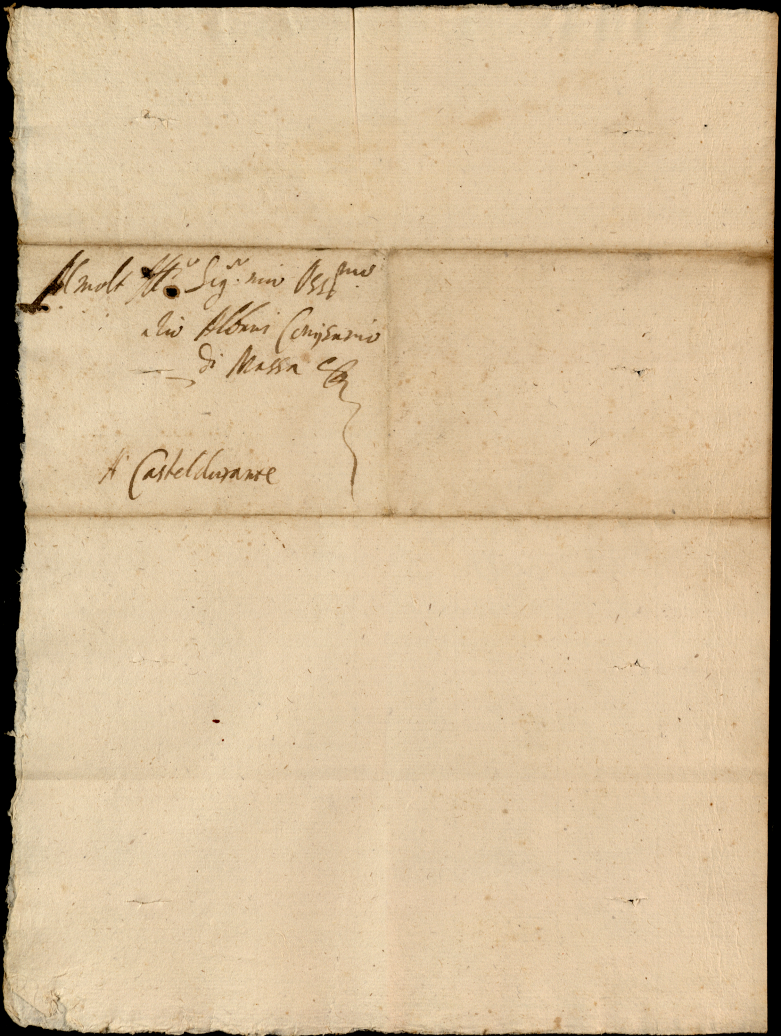 Al molt Ill.re Sig.r mio Oss.mo
Albani Comissario
di Massa &
A Casteldurante